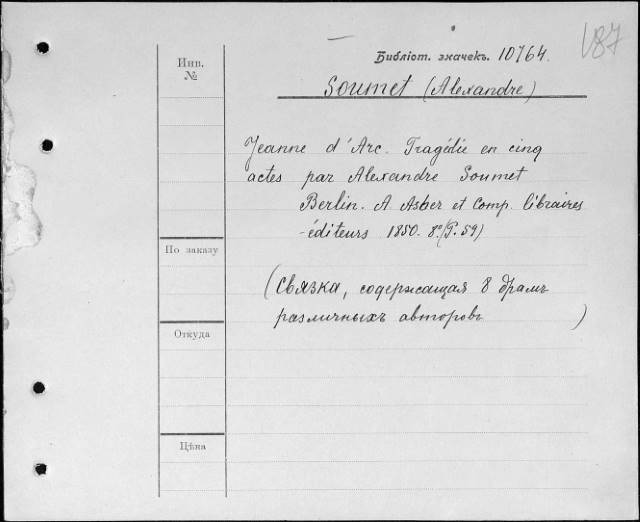 187
Библіот. значекъ. 10764.
Инв.
№
Soumet (Alexandre)
Jeanne d'Arc. Tragédie en cinq
actes par Alexandre Soumet
Berlin. A. Asher et Comp. libraires
-éditeurs 1850. 8º (P. 59)
По заказу
(Связка, содержащая 8 драмъ
различныхъ авторовъ )
Откуда
Цѣна